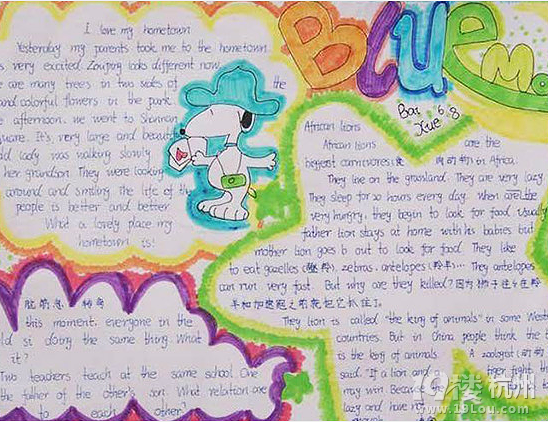 I love my hometown
Yesterday my parents took me to the hometown.
s very excited. Zouping looks different now.
e are many trees in two sides of the
and colorful flowers in the park.
afternoon. we went to Shannan
uare. It's very large and beautif
ld lady was walking slowly
her grandson. They were looking
around and smiling. The life of the
people is better and better.
What a lovely place my
hometown is!
BLUE Mo
Bai 6.8
Xue
African lions
African lions are the
biggest carnivores(食肉动物) in Africa.
They live on the grassland. They are very lazy.
They sleep for 20 hours every day. When are the
very hungry, they begin to look for food. Usually
father lion stays at home with his babies but
mother lion goes out to look for food. They like
to eat gazelles zebras. antelopes (羚羊)... They antelopes
can run very fast. But why are they killed? 因为狮子
羊和加
They lion is called "the king of animals" in some West
countries. But in China people think the t
is the king of animals. A zoologist (动物
said. "If a lion and a tiger fight the
may win. Becau
lazy and have n
脑筋急转弯
this moment. everyone in the
ld si doing the same thing. What
it?
Two teachers teach at the same school. One
the father of the other's son. What relation are
to each other?
19楼 杭州
www.19Lou.com